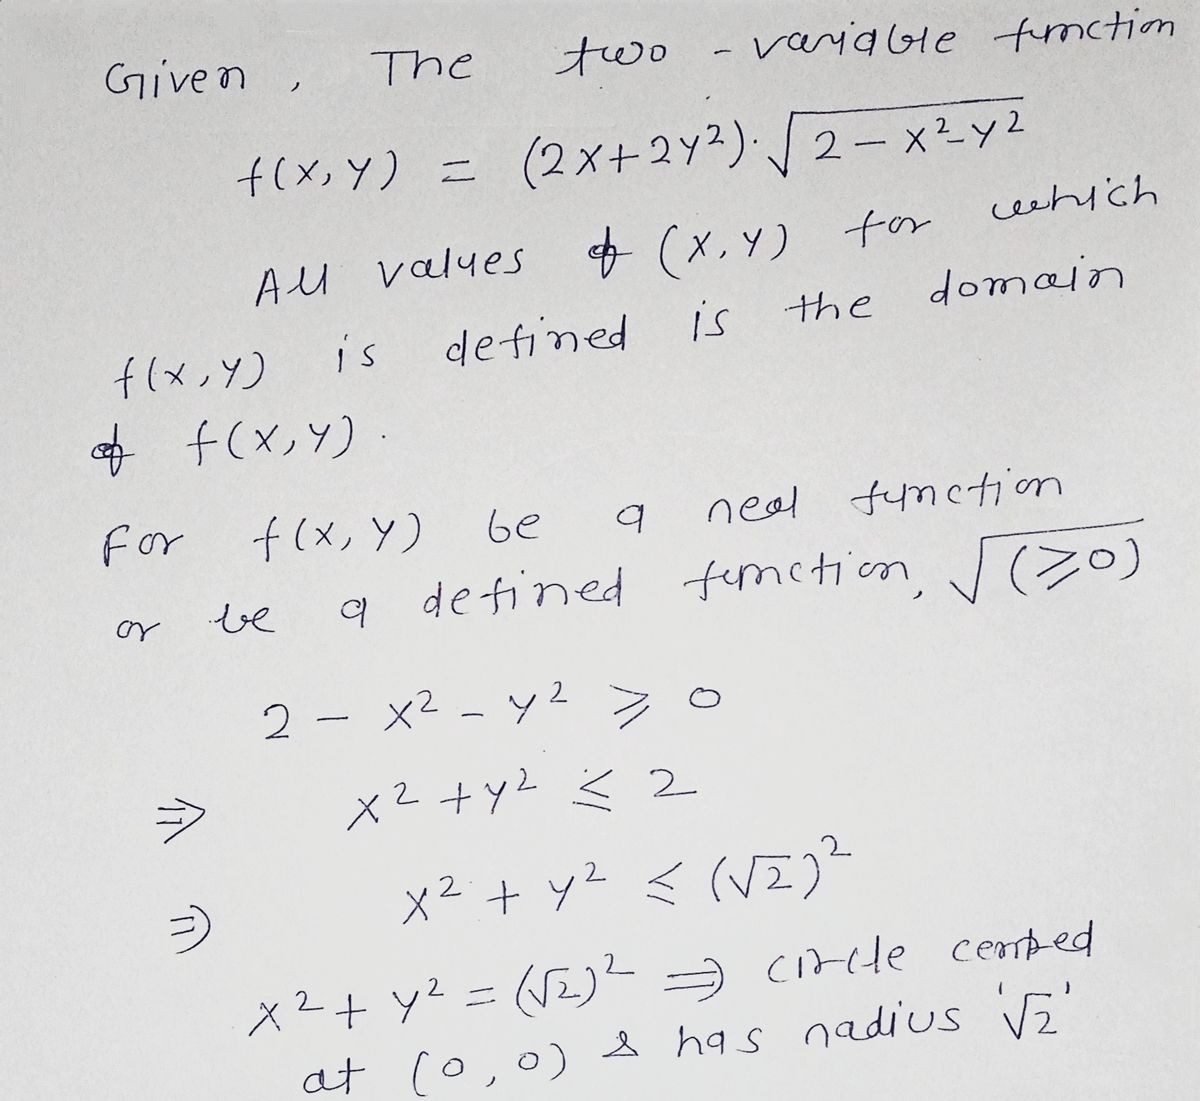 Given, The two-variable function
f(x,y) = (2x+2y²)·√(2-x²-y²)
All values of (x,y) for which
f(x,y) is defined is the domain
of f(x,y).
For f(x,y) be a real function
or be a defined function, √(≥0)
2 - x² - y² ≥ 0
⇒ x² + y² ≤ 2
⇒ x² + y² ≤ (√2)²
x² + y² = (√2)² ⇒ circle centred
at (0,0) & has radius '√2'